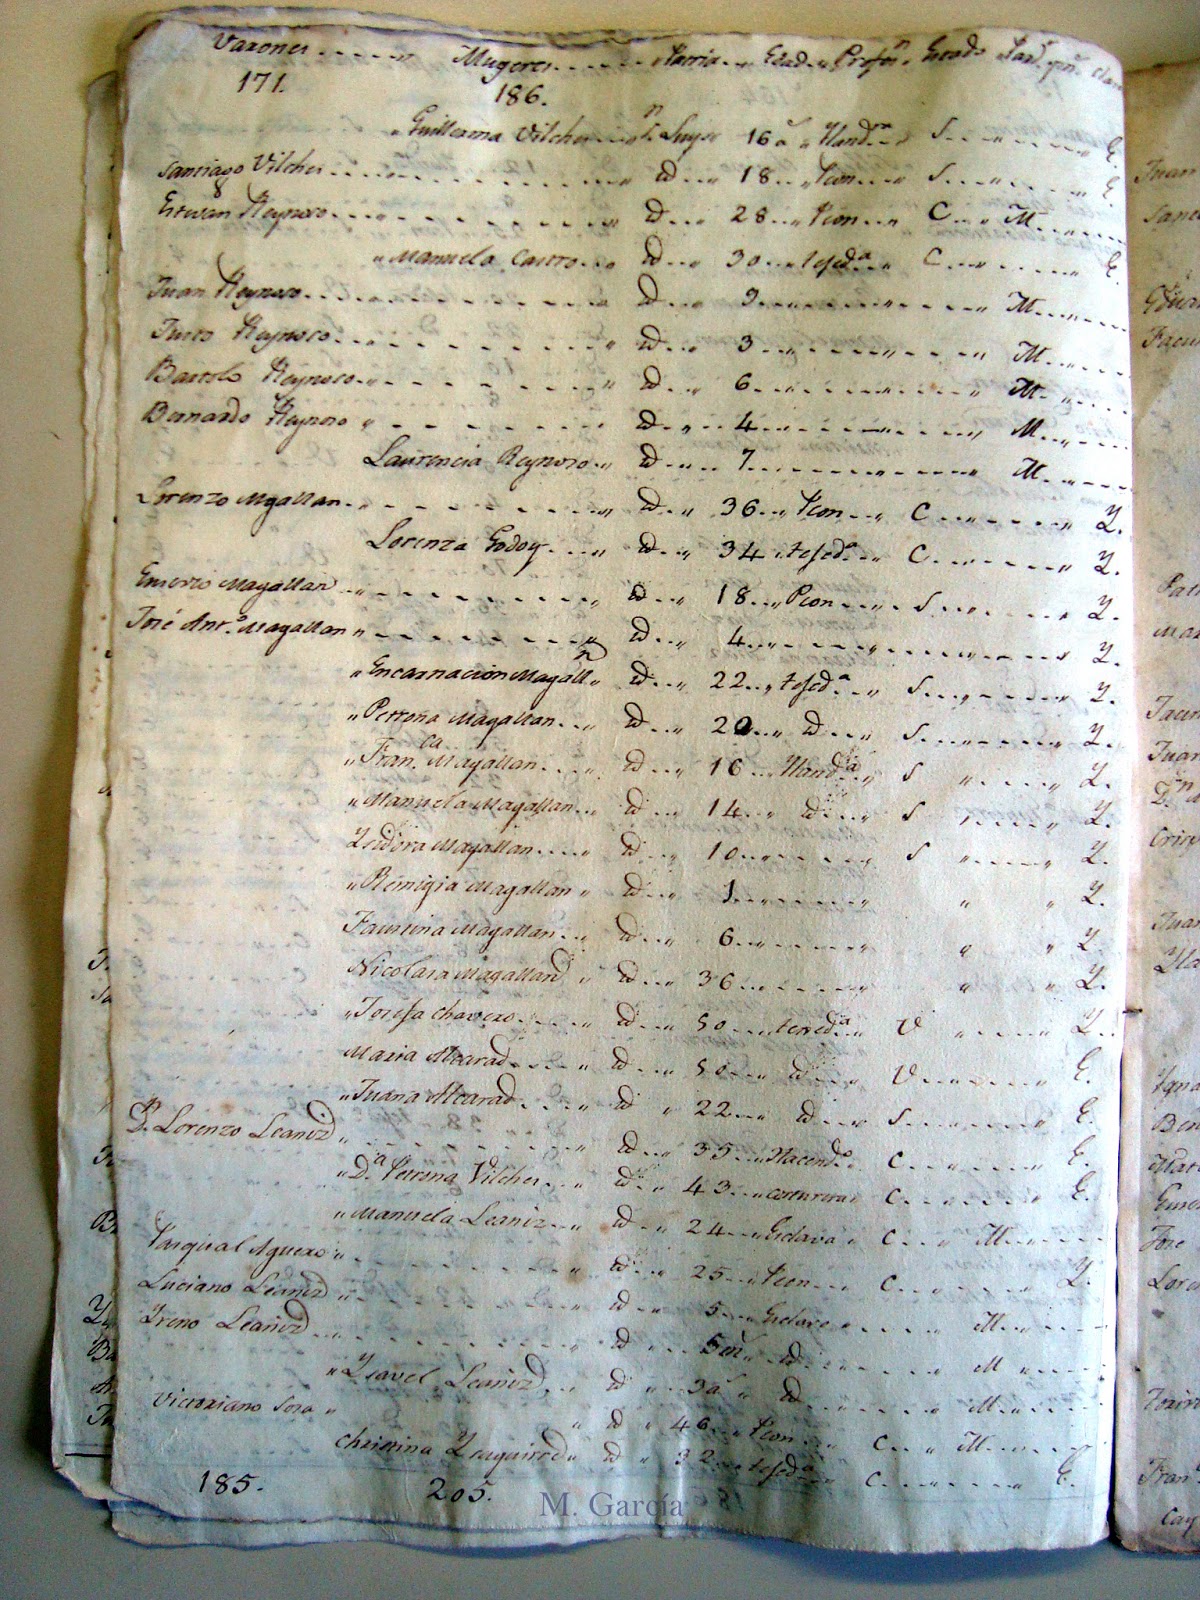 Varones Mugeres Patria Edad Profon Estado
171. 186.
Guillerma Vilches Sn Luys 16 a Hilandra S E.
Santiago Vilches id 18 Peon S E.
Estevan Reynoso id 28 Peon C M
Manuela Castro id 30 texeda C E.
Juan Reynoso id 9 M
Justo Reynoso id 3 M
Bartolo Reynoso id 6 M
Bernardo Reynoso id 4 M
Laurencia Reynoso id 7 M
Lorenzo Magallan id 36 Peon C Y.
Lorenza Godoy id 34 texeda C Y.
Emerio Magallan id 18 Peon S Y.
José Anto Magallan id 4 Y.
Encarnacion Magalln id 22 texeda S Y.
Petrona Magallan id 20 id S Y.
Franca Magallan id 16 Hilanda S Y.
Manuela Magallan id 14 id S Y.
Ysidora Magallan id 10 S Y.
Remigia Magallan id 1 Y.
Faustina Magallan id 6 Y
Nicolasa Magallan id 36 Y.
Josefa Chavero id 50 texeda V Y.
Maria Alvarad id 50 id V E.
Juana Alvarad id 22 id S E.
Dn Lorenzo Leaniz id 35 Hacendo C E.
Da Petrona Vilches id 43 costurera C E.
Manuela Leaniz id 24 Esclava C M
Pasqual Aguero id 25 Peon C Y.
Luciano Leaniz id 5 Esclavo M
Yreno Leaniz id 5 ms id M
Ysavel Leaniz id 3 as id M
Victoriano Sosa id 46 Peon C M
Christina Yzaguirre id 32 texeda C E.
185. 205.
M. García